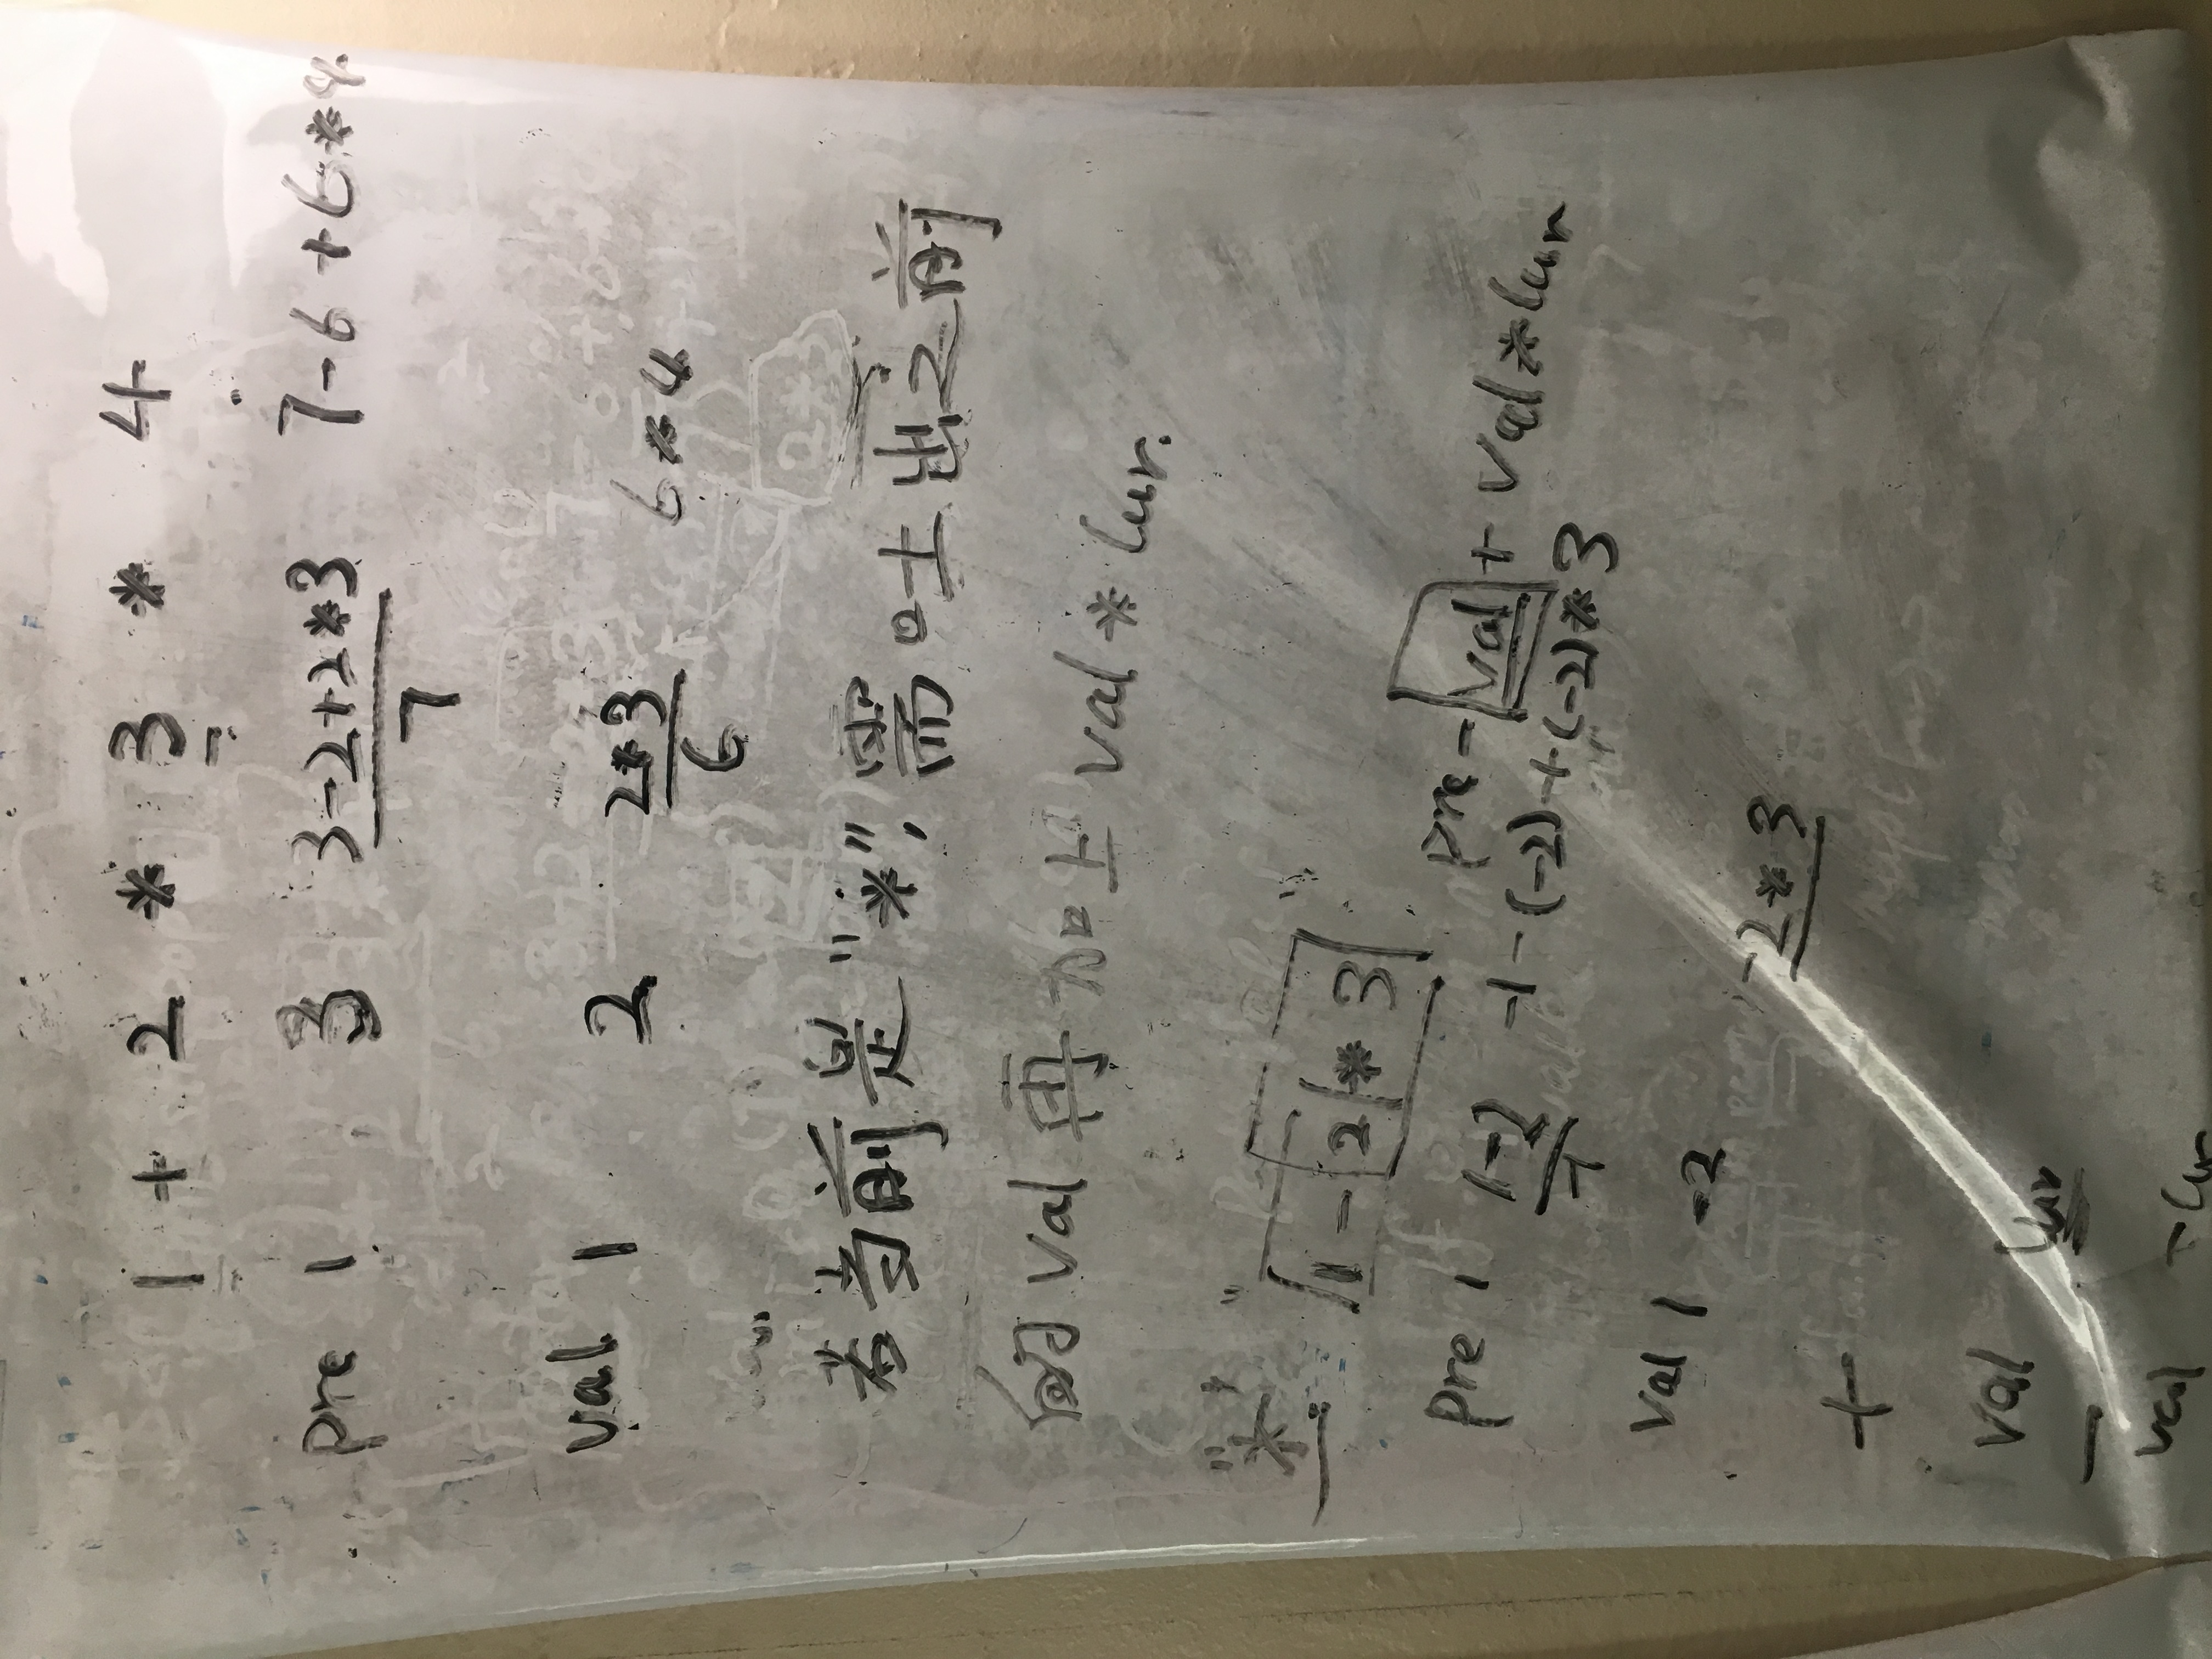 1 + 2 * 3 * 4
pre 1 3 3-2+2*3 7-6+6*4
7
val 1 2 2*3 6*4
6
若当前是"*",需吐出之前
的val再加上 val * cur.
"*" "1-2*3"
pre - val + val*cur
pre 1 1-2 -1-(-2)+(-2)*3
-1
val 1 -2
-2*3
+
val cur
-
val -cur